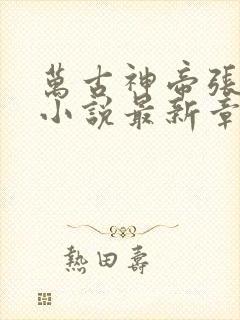 萬古神帝張
小說最新章
熱田壽